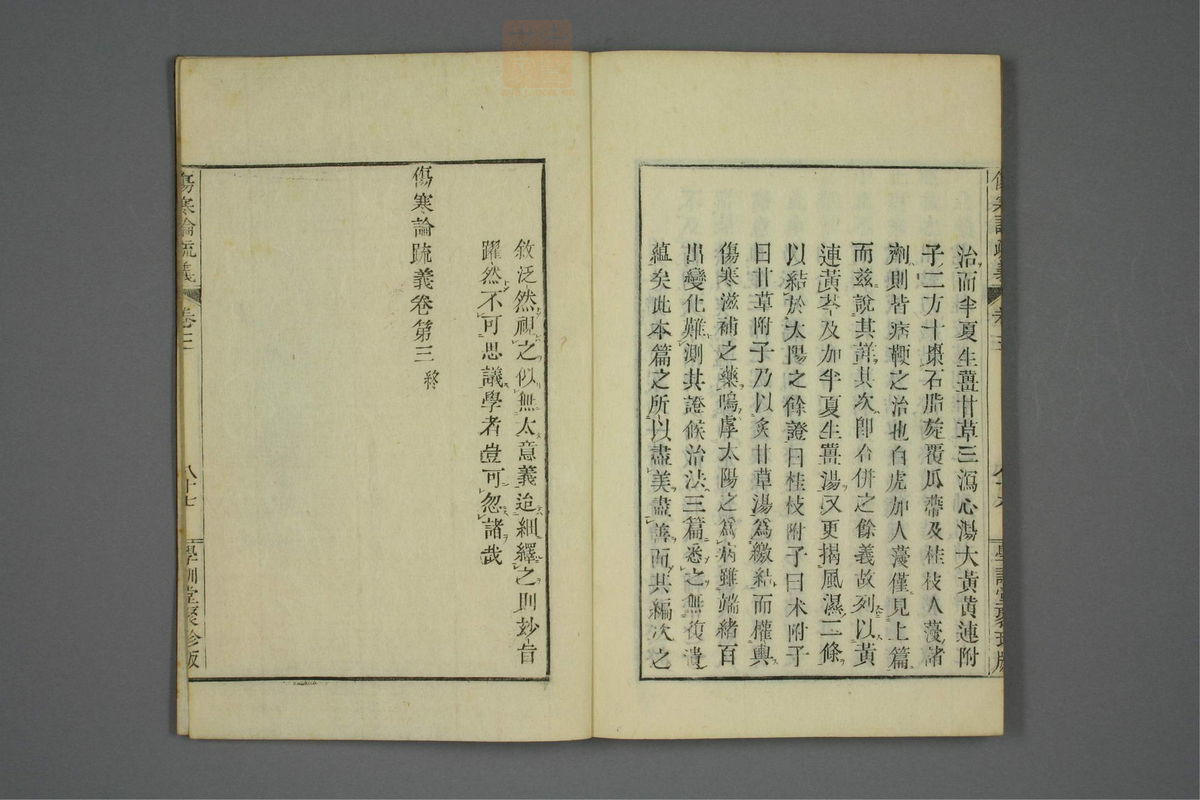 治而半夏生薑甘草三瀉心湯大黃黃連附
子二方十棗石脂旋覆瓜蔕及桂枝人蓡諸
劑則皆痞鞕之治也白虎加人蓡僅見上篇
而茲說其詳其次卽合併之餘義故列以黃
連黃芩及加半夏生薑湯又更揭風濕二條
以結於太陽之餘證曰桂枝附子曰朮附子
曰甘草附子乃以炙甘草湯爲繳結而權輿
傷寒滋補之藥嗚虖太陽之爲病雖端緖百
出變化難測其證候治法三篇悉之無復遺
蘊矣此本篇之所以盡美盡善而其編次之
敘泛然視之似無太意義迨細繹之則妙旨
躍然不可思議學者豈可忽諸哉
傷寒論疏義卷第三 終
傷寒論疏義 卷三 八十七 學訓堂聚珍版